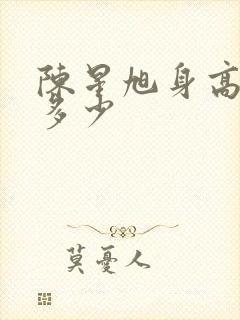 陳星旭身高
多少
莫憂人